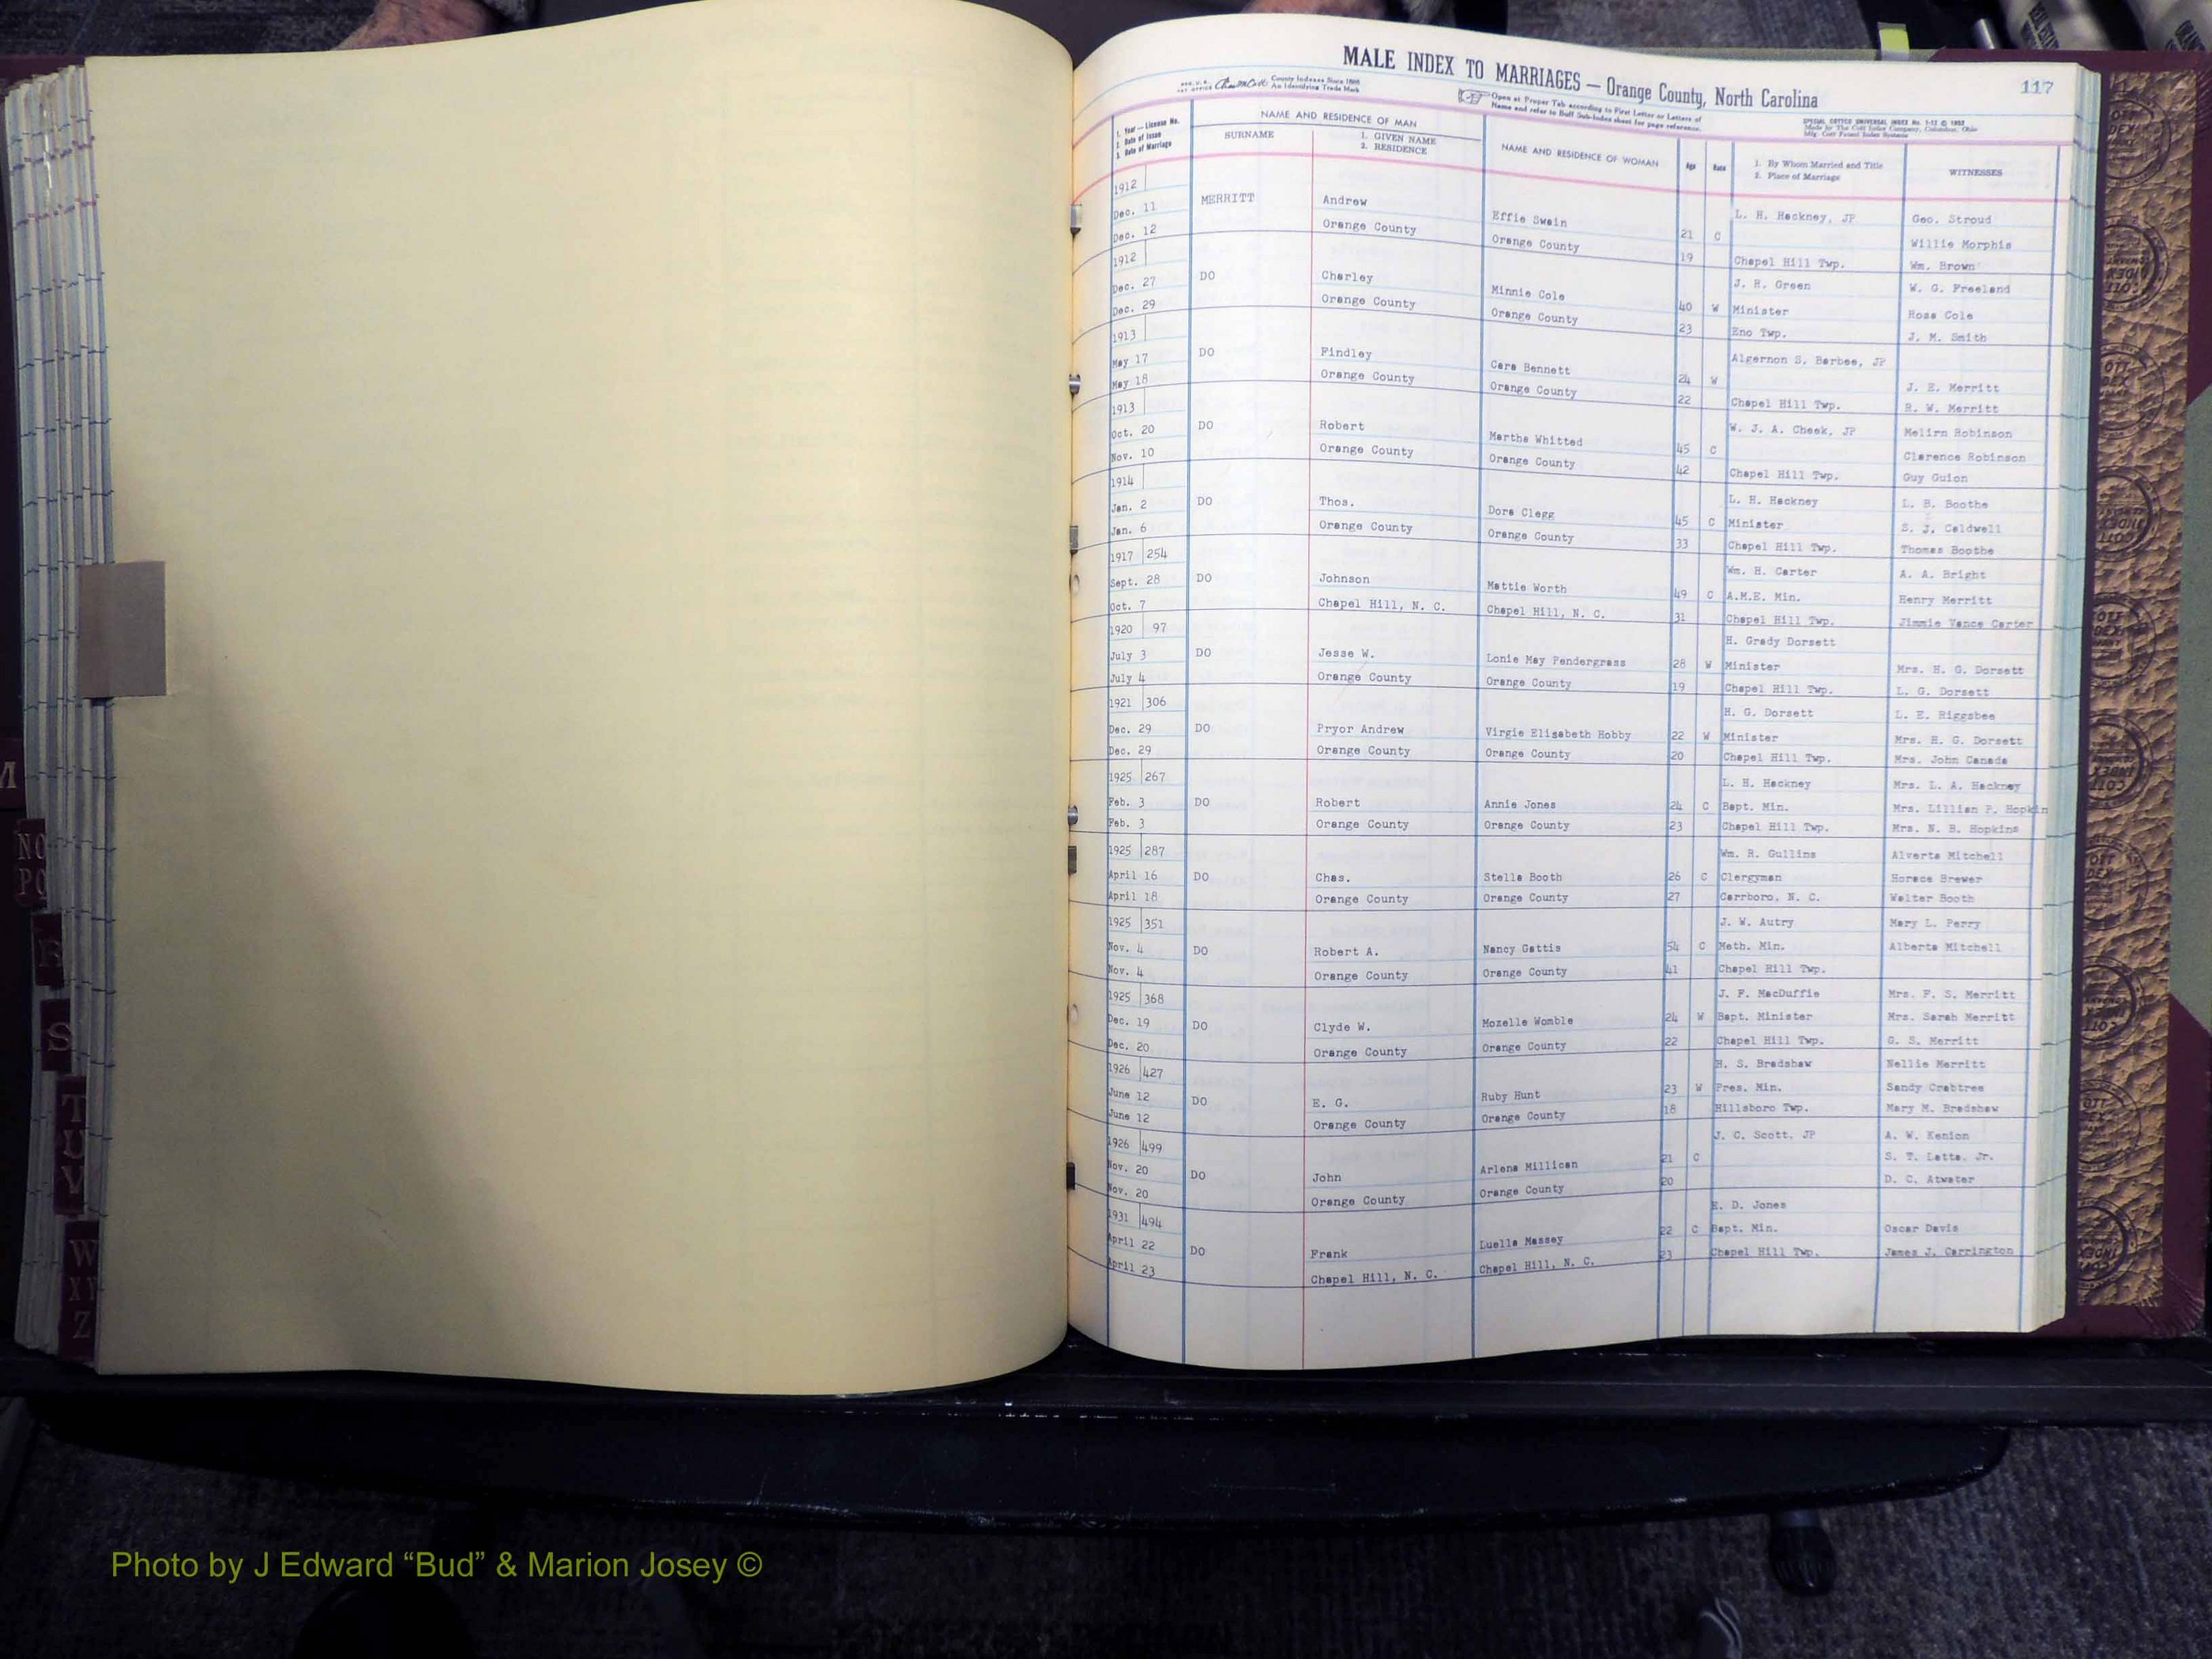 MALE INDEX TO MARRIAGES — Orange County, North Carolina
117
County Indexes Since 1888
An Identifying Trade Mark
Open at Proper Tab according to First Letter or Letters of
Name and refer to Buff Sub-Index sheet for page reference.
Made by The Cott Index Company, Columbus, Ohio
1. Year — License No.
2. Date of Issue
3. Date of Marriage
NAME AND RESIDENCE OF MAN
SURNAME
1. GIVEN NAME
2. RESIDENCE
NAME AND RESIDENCE OF WOMAN
Age
Race
1. By Whom Married and Title
2. Place of Marriage
WITNESSES
1912
Dec. 11 MERRITT Andrew Effie Swain L. H. Hackney, JP Geo. Stroud
Dec. 12 Orange County Orange County 21 C Willie Morphis
19 Chapel Hill Twp. Wm. Brown
1912 J. H. Green W. G. Freeland
Dec. 27 DO Charley Minnie Cole 40 W Minister Ross Cole
Dec. 29 Orange County Orange County 23 Eno Twp. J. M. Smith
1913 Algernon S. Barbee, JP
May 17 DO Findley Cara Bennett 24 W J. E. Merritt
May 18 Orange County Orange County 22 Chapel Hill Twp. R. W. Merritt
1913 W. J. A. Cheek, JP Melirn Robinson
Oct. 20 DO Robert Martha Whitted 45 C Clarence Robinson
Nov. 10 Orange County Orange County 42 Chapel Hill Twp. Guy Guion
1914 L. H. Hackney L. B. Boothe
Jan. 2 DO Thos. Dora Clegg 45 C Minister S. J. Caldwell
Jan. 6 Orange County Orange County 33 Chapel Hill Twp. Thomas Boothe
1917 254 Wm. H. Carter A. A. Bright
Sept. 28 DO Johnson Mattie Worth 49 C A.M.E. Min. Henry Merritt
Oct. 7 Chapel Hill, N. C. Chapel Hill, N. C. 31 Chapel Hill Twp. Jimmie Vance Carter
1920 97 H. Grady Dorsett
July 3 DO Jesse W. Lonie May Pendergrass 28 W Minister Mrs. H. G. Dorsett
July 4 Orange County Orange County 19 Chapel Hill Twp. L. G. Dorsett
1921 306 H. G. Dorsett L. E. Riggsbee
Dec. 29 DO Pryor Andrew Virgie Elizabeth Hobby 22 W Minister Mrs. H. G. Dorsett
Dec. 29 Orange County Orange County 20 Chapel Hill Twp. Mrs. John Canada
1925 267 L. H. Hackney Mrs. L. A. Hackney
Feb. 3 DO Robert Annie Jones 24 C Bapt. Min. Mrs. Lillian P. Hopkin
Feb. 3 Orange County Orange County 23 Chapel Hill Twp. Mrs. N. B. Hopkins
1925 287 Wm. R. Gullins Alverta Mitchell
April 16 DO Chas. Stella Booth 26 C Clergyman Horace Brewer
April 18 Orange County Orange County 27 Carrboro, N. C. Walter Booth
1925 351 J. W. Autry Mary L. Perry
Nov. 4 DO Robert A. Nancy Gattis 54 C Meth. Min. Alberta Mitchell
Nov. 4 Orange County Orange County 41 Chapel Hill Twp.
1925 368 J. F. MacDuffie Mrs. F. S. Merritt
Dec. 19 DO Clyde W. Mozelle Womble 24 W Bapt. Minister Mrs. Sarah Merritt
Dec. 20 Orange County Orange County 22 Chapel Hill Twp. G. S. Merritt
1926 427 H. S. Bradshaw Nellie Merritt
June 12 DO E. G. Ruby Hunt 23 W Pres. Min. Sandy Crabtree
June 12 Orange County Orange County 18 Hillsboro Twp. Mary M. Bradshaw
1926 499 J. C. Scott, JP A. W. Kenion
Nov. 20 DO John Arlena Millican 21 C S. T. Latta, Jr.
Nov. 20 Orange County Orange County 20 D. C. Atwater
1931 494 R. D. Jones
April 22 DO Frank Luella Massey 22 C Bapt. Min. Oscar Davis
April 23 Chapel Hill, N. C. Chapel Hill, N. C. 23 Chapel Hill Twp. James J. Carrington
M
NO
PQ
R
S
T
U
V
W
XY
Z
Photo by J Edward “Bud” & Marion Josey ©